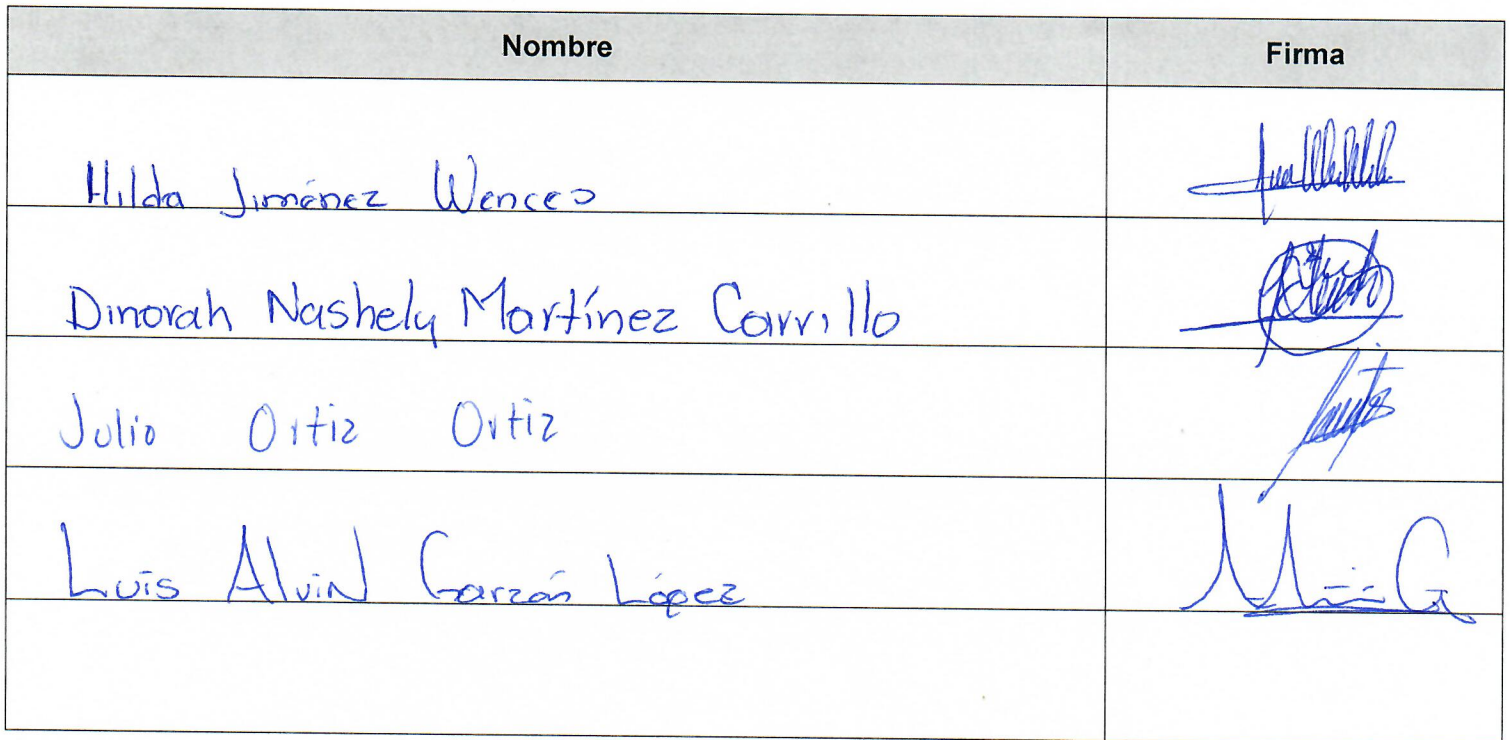 Nombre Firma
Hilda Jiménez Wences
Dinorah Nashely Martínez Carrillo
Julio Ortiz Ortiz
Luis Alvin Garzón López